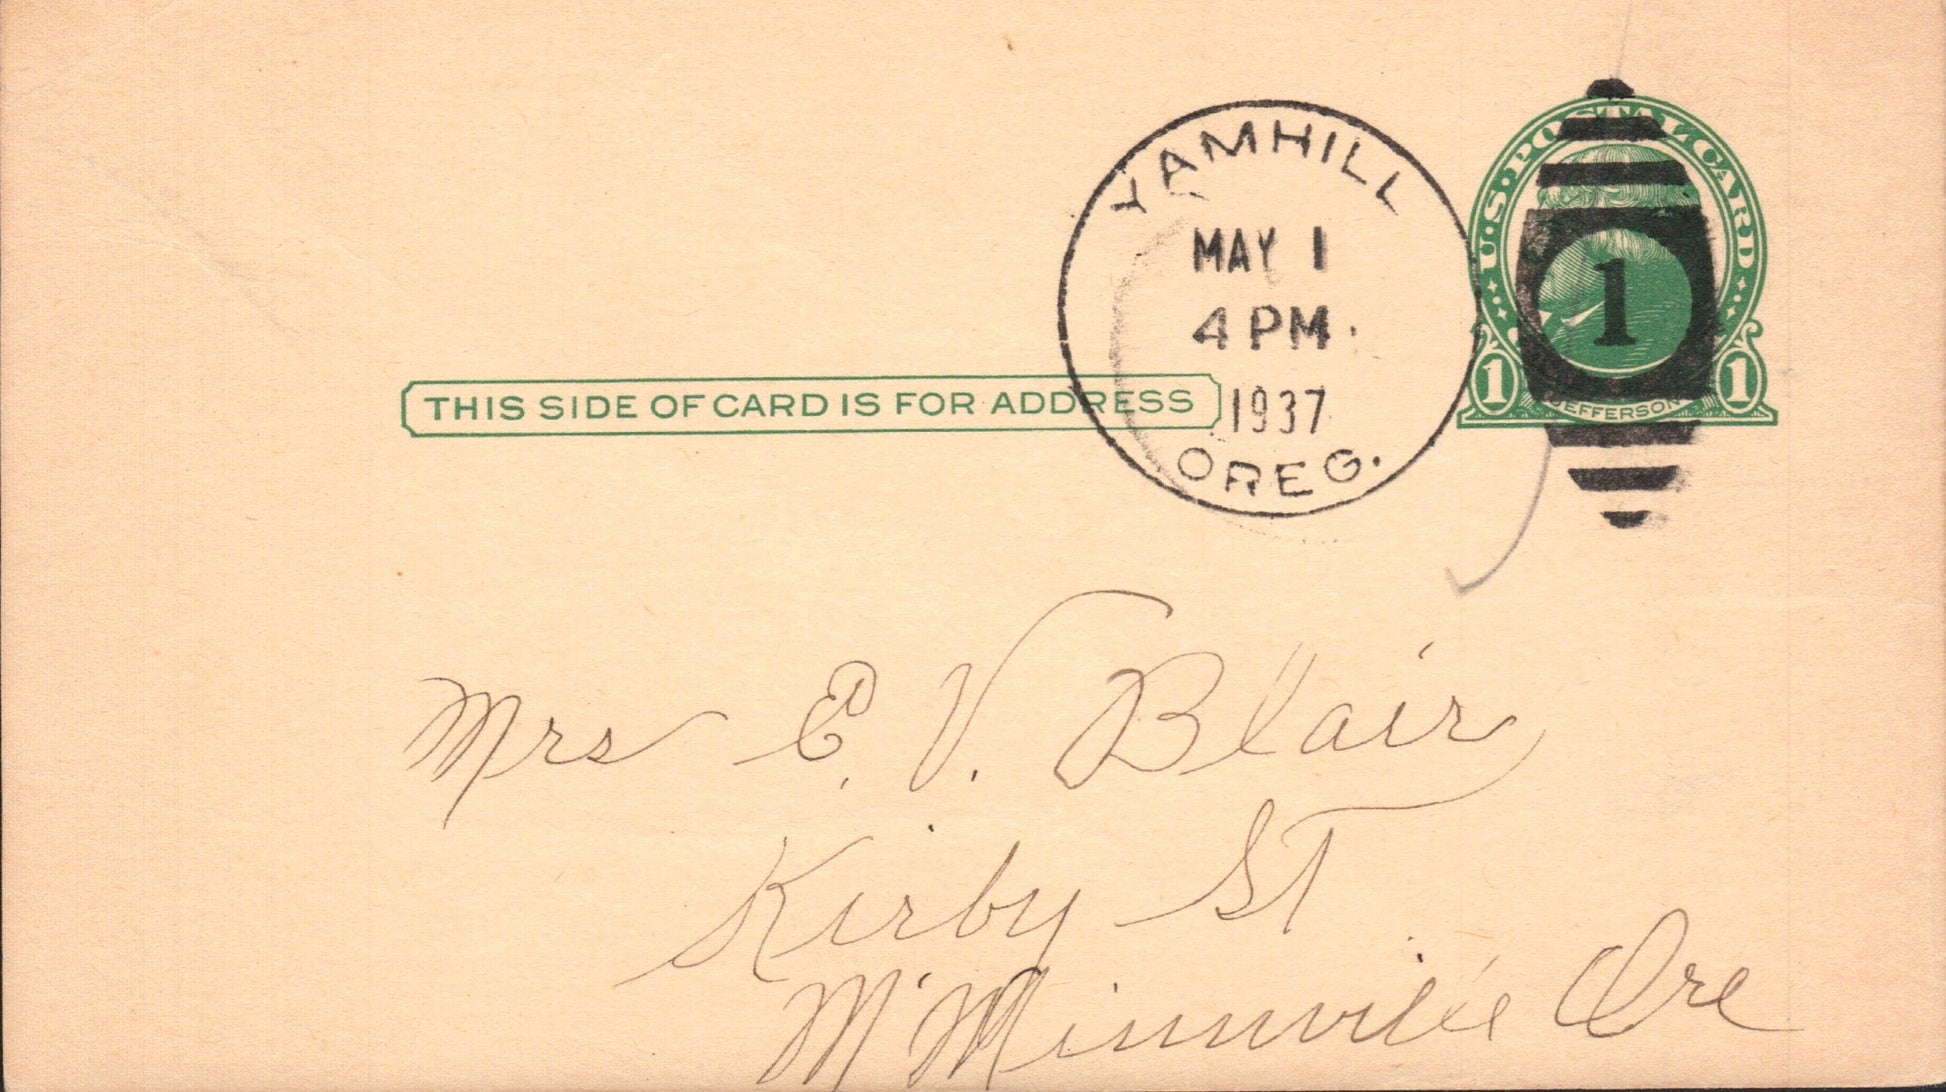 YAMHILL
MAY 1
4 PM.
1937
OREG.
U.S. POSTAL CARD
1
1 JEFFERSON 1
THIS SIDE OF CARD IS FOR ADDRESS
Mrs E. V. Blair
Kirby St
McMinnville Ore